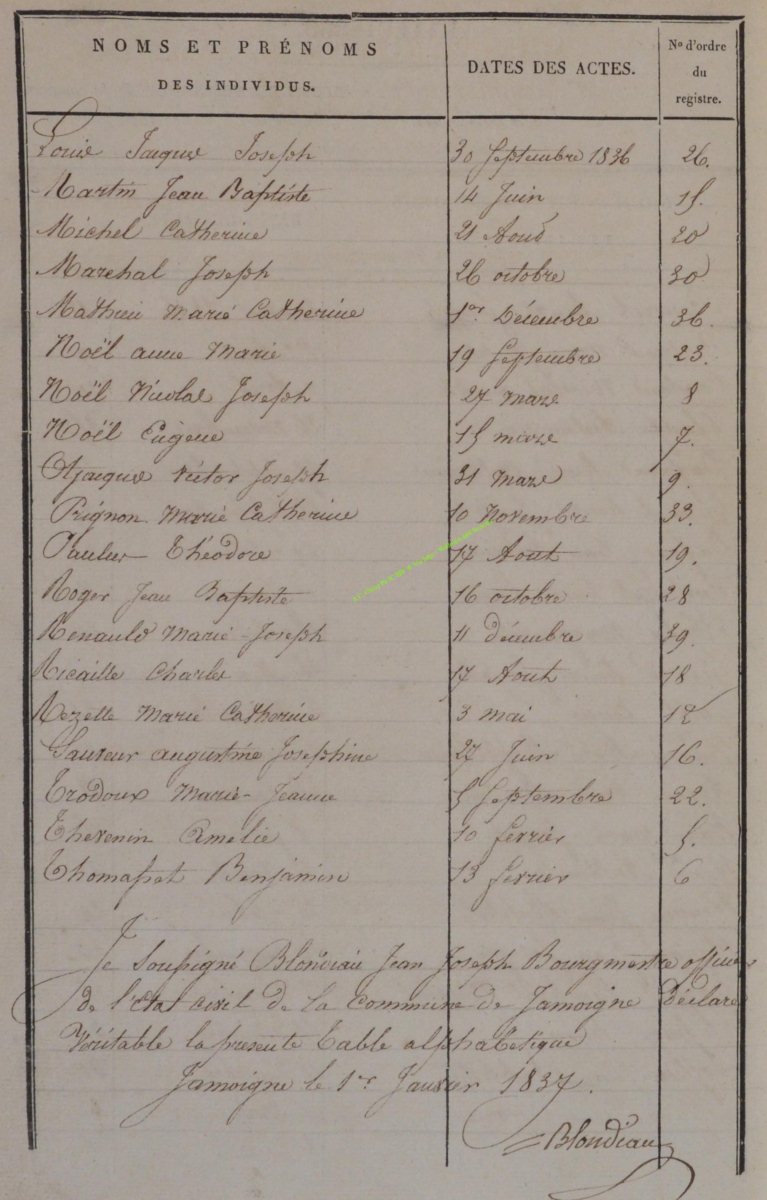 NOMS ET PRÉNOMS
DES INDIVIDUS.
DATES DES ACTES.
No d'ordre
du
registre.
Louis Jacques Joseph 30 Septembre 1836 26.
Martin Jean Baptiste 14 Juin 15.
Michel Catherine 21 Aout 20
Marechal Joseph 26 octobre 30
Mathieu Marie Catherine 1er Décembre 36.
Noël anne Marie 19 Septembre 23.
Noël Nicolas Joseph 27 Mars 8
Noël Eugene 15 mars 7.
Otjacques Victor Joseph 31 Mars 9.
Pignon Marie Catherine 10 Novembre 33.
Paulus Théodore 17 Aout 19.
Roger Jean Baptiste 16 octobre 28
Renauld Marie-Joseph 11 décembre 39.
Ricaille Charles 17 Aout 18
Rezette Marie Catherine 3 mai 12
Sauveur augustine Josephine 27 Juin 16.
Trodoux Marie-Jeanne 5 Septembre 22.
Thevenin Amelie 10 fevrier 5.
Thomasset Benjamin 13 fevrier 6
Je Soussigné Blondiau Jean Joseph Bourgmestre officier
de l'Etat civil de la Commune de Jamoigne Déclare
Véritable la presente Table alphabetique
Jamoigne le 1er Janvier 1837.
Blondiau